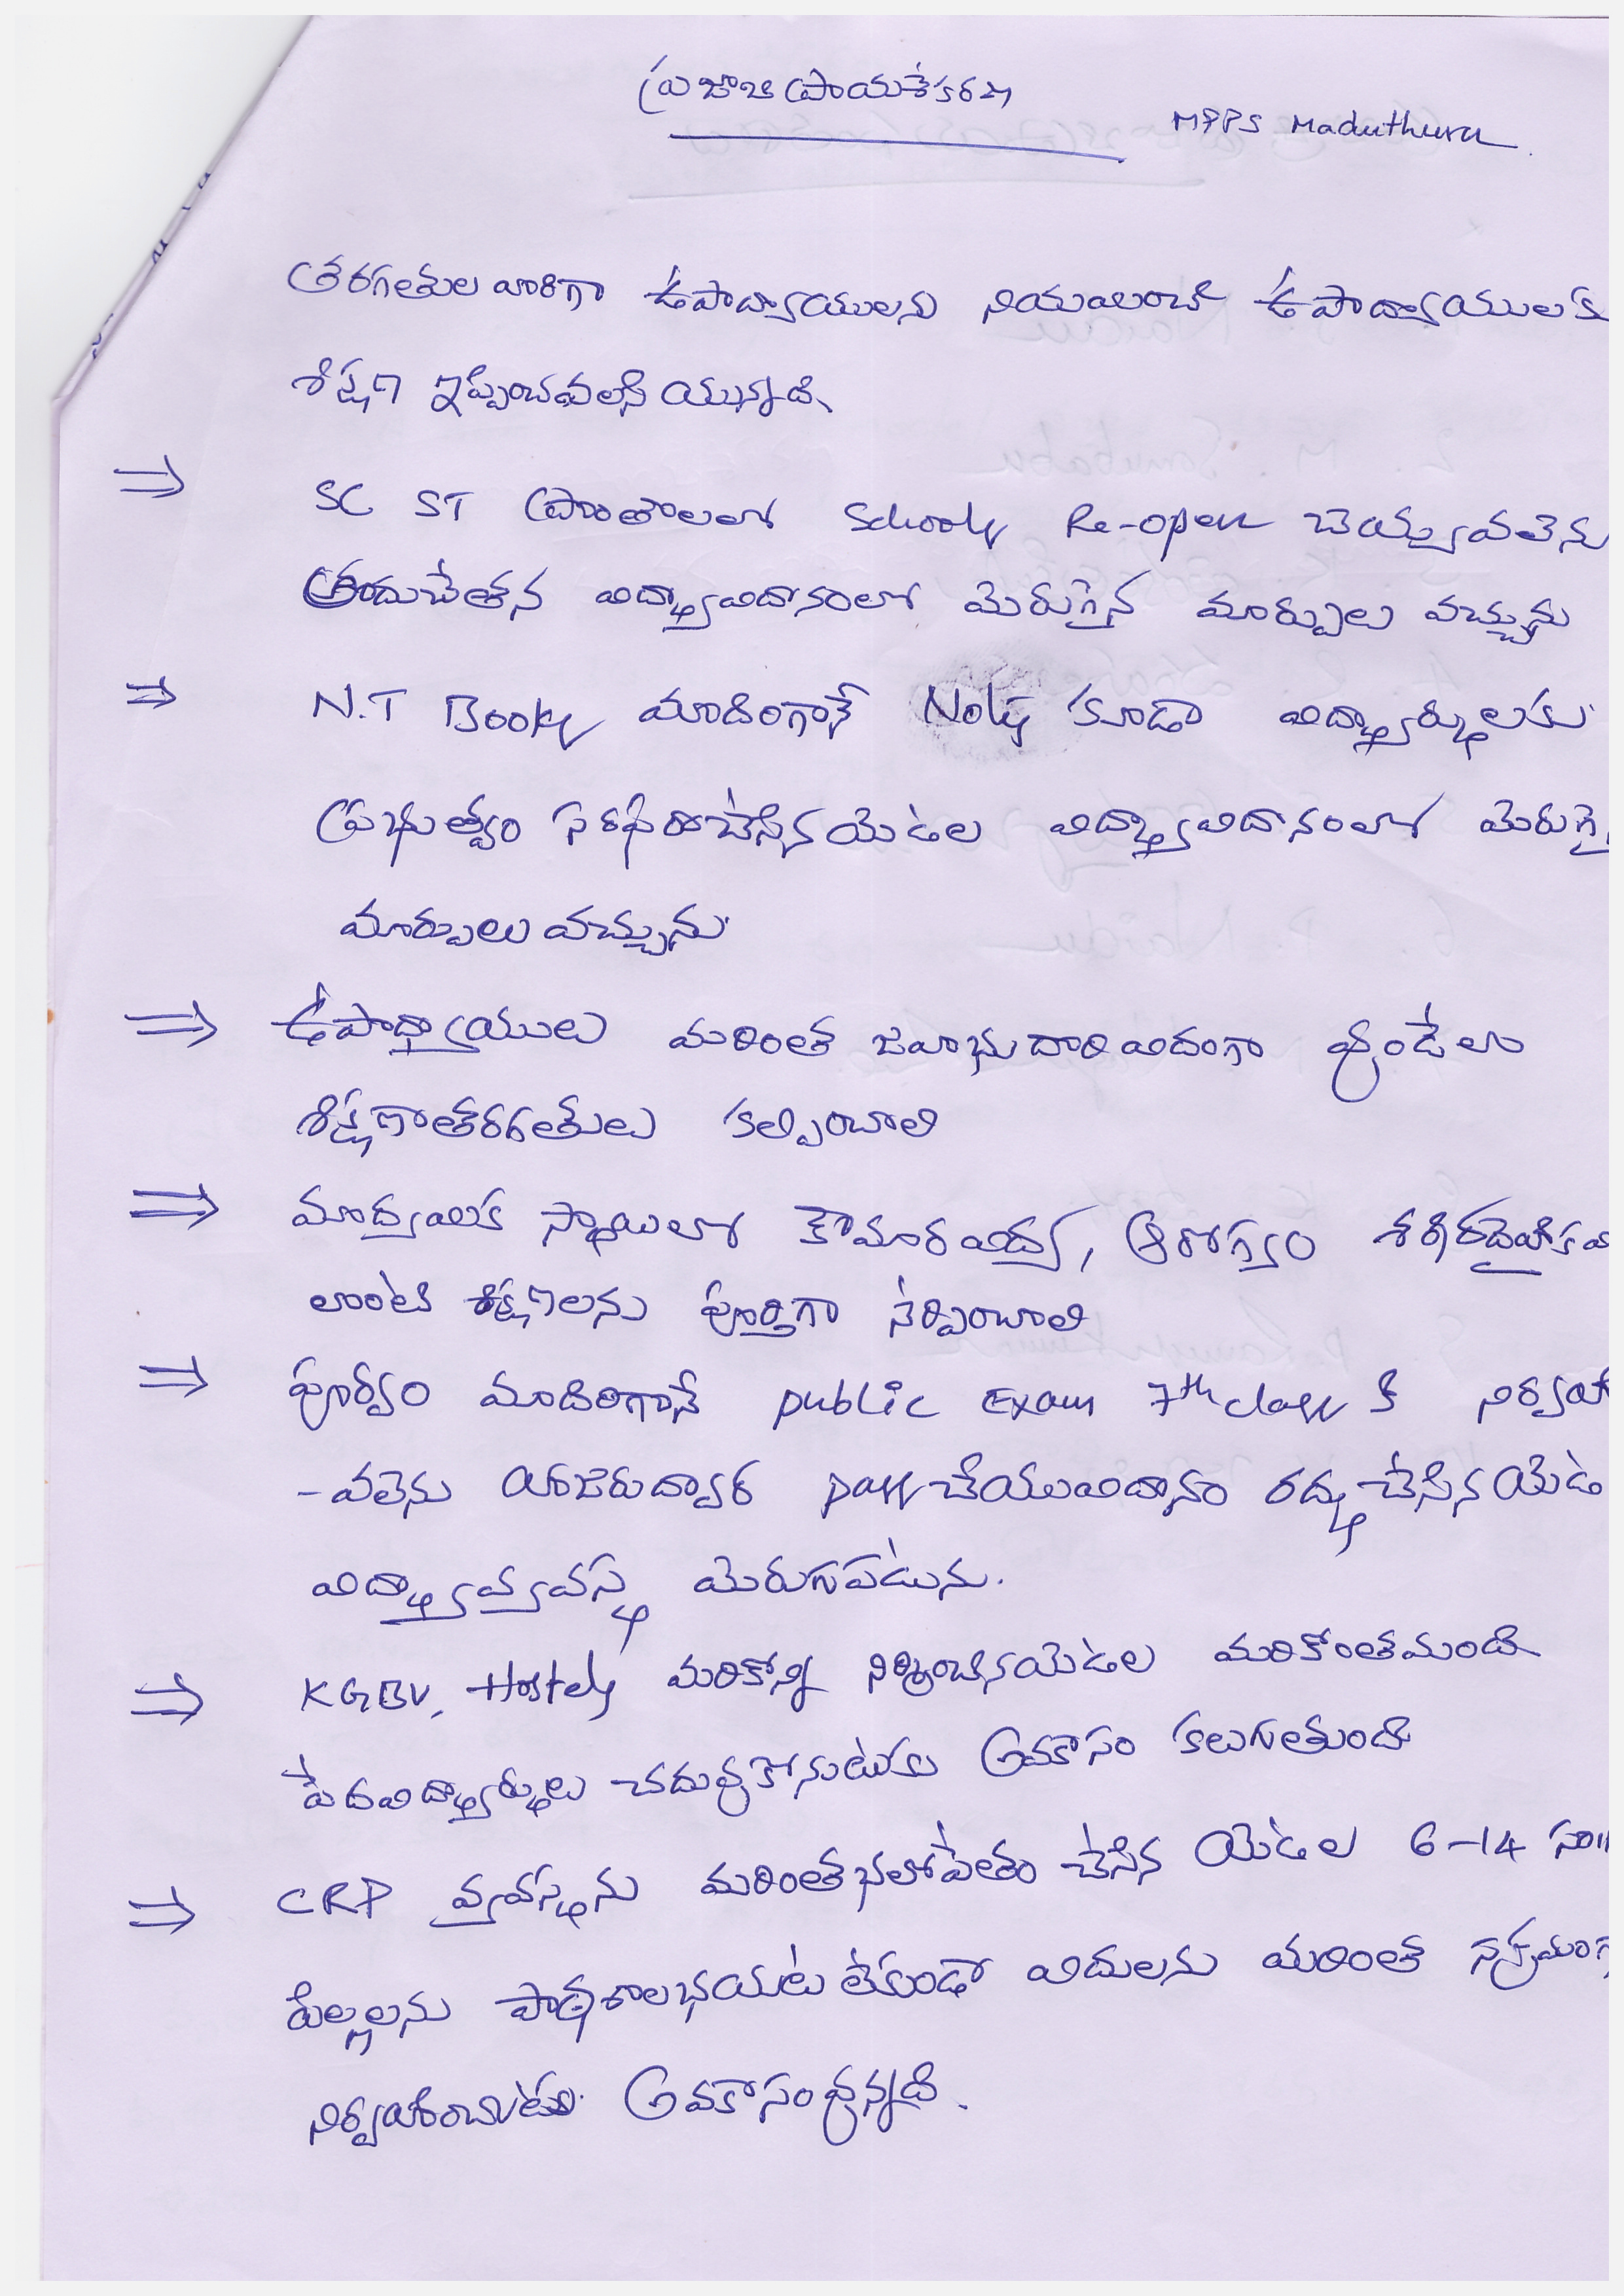 ప్రజాభిప్రాయశేకరణ
MPPS Maduthuru
తరగతుల వారిగా ఉపాద్యాయులను నియమించి ఉపాద్యాయులకు
శిక్షణ ఇప్పించవలసి యున్నది.
⇒ SC ST ప్రాంతాలలో Schools Re-open చెయ్యవలెను
అందుచేతన విద్యావిదానంలో మెరుగైన మార్పులు వచ్చును
⇒ N.T Books మాదింగానే Notes కూడా విద్యార్ధులకు
ప్రభుత్వం సరఫరాచేసినయెడల విద్యావిదానంలో మెరుగై
మార్పులు వచ్చును
⇒ ఉపాద్యాయులు మరింత జవాభుదారి విదంగా వుండేలా
శిక్షణాతరగతులు కల్పించాలి
⇒ మాద్యమిక స్థాయిలో కౌమార విద్య, ఆరోగ్యం
లాంటి శిక్షణలను పూర్తిగా నేర్పించాలి
⇒ పూర్వం మాదిరిగానే public Exam 7th class కి
-వలెను హాజరుద్వార pass చేయువిదానం రద్దుచేసిన యెడ
విద్యావ్యవస్థ మెరుగుపడును.
⇒ KGBV, Hostels మరికొన్ని నిర్మించినయెడల మరికొంతమంది
పేదవిద్యార్ధులు చదువుకోనుటకు అవకాసం కలుగుతుంది
⇒ CRP వ్యవస్థను మరింతభలోపేతం చేసిన యెడల 6-14 సం॥
పిల్లలను పాఠశాలభయట లేకుండా విదులను మరింత సక్రమంగ
నిర్వహించుటకు అవకాసంవున్నది.